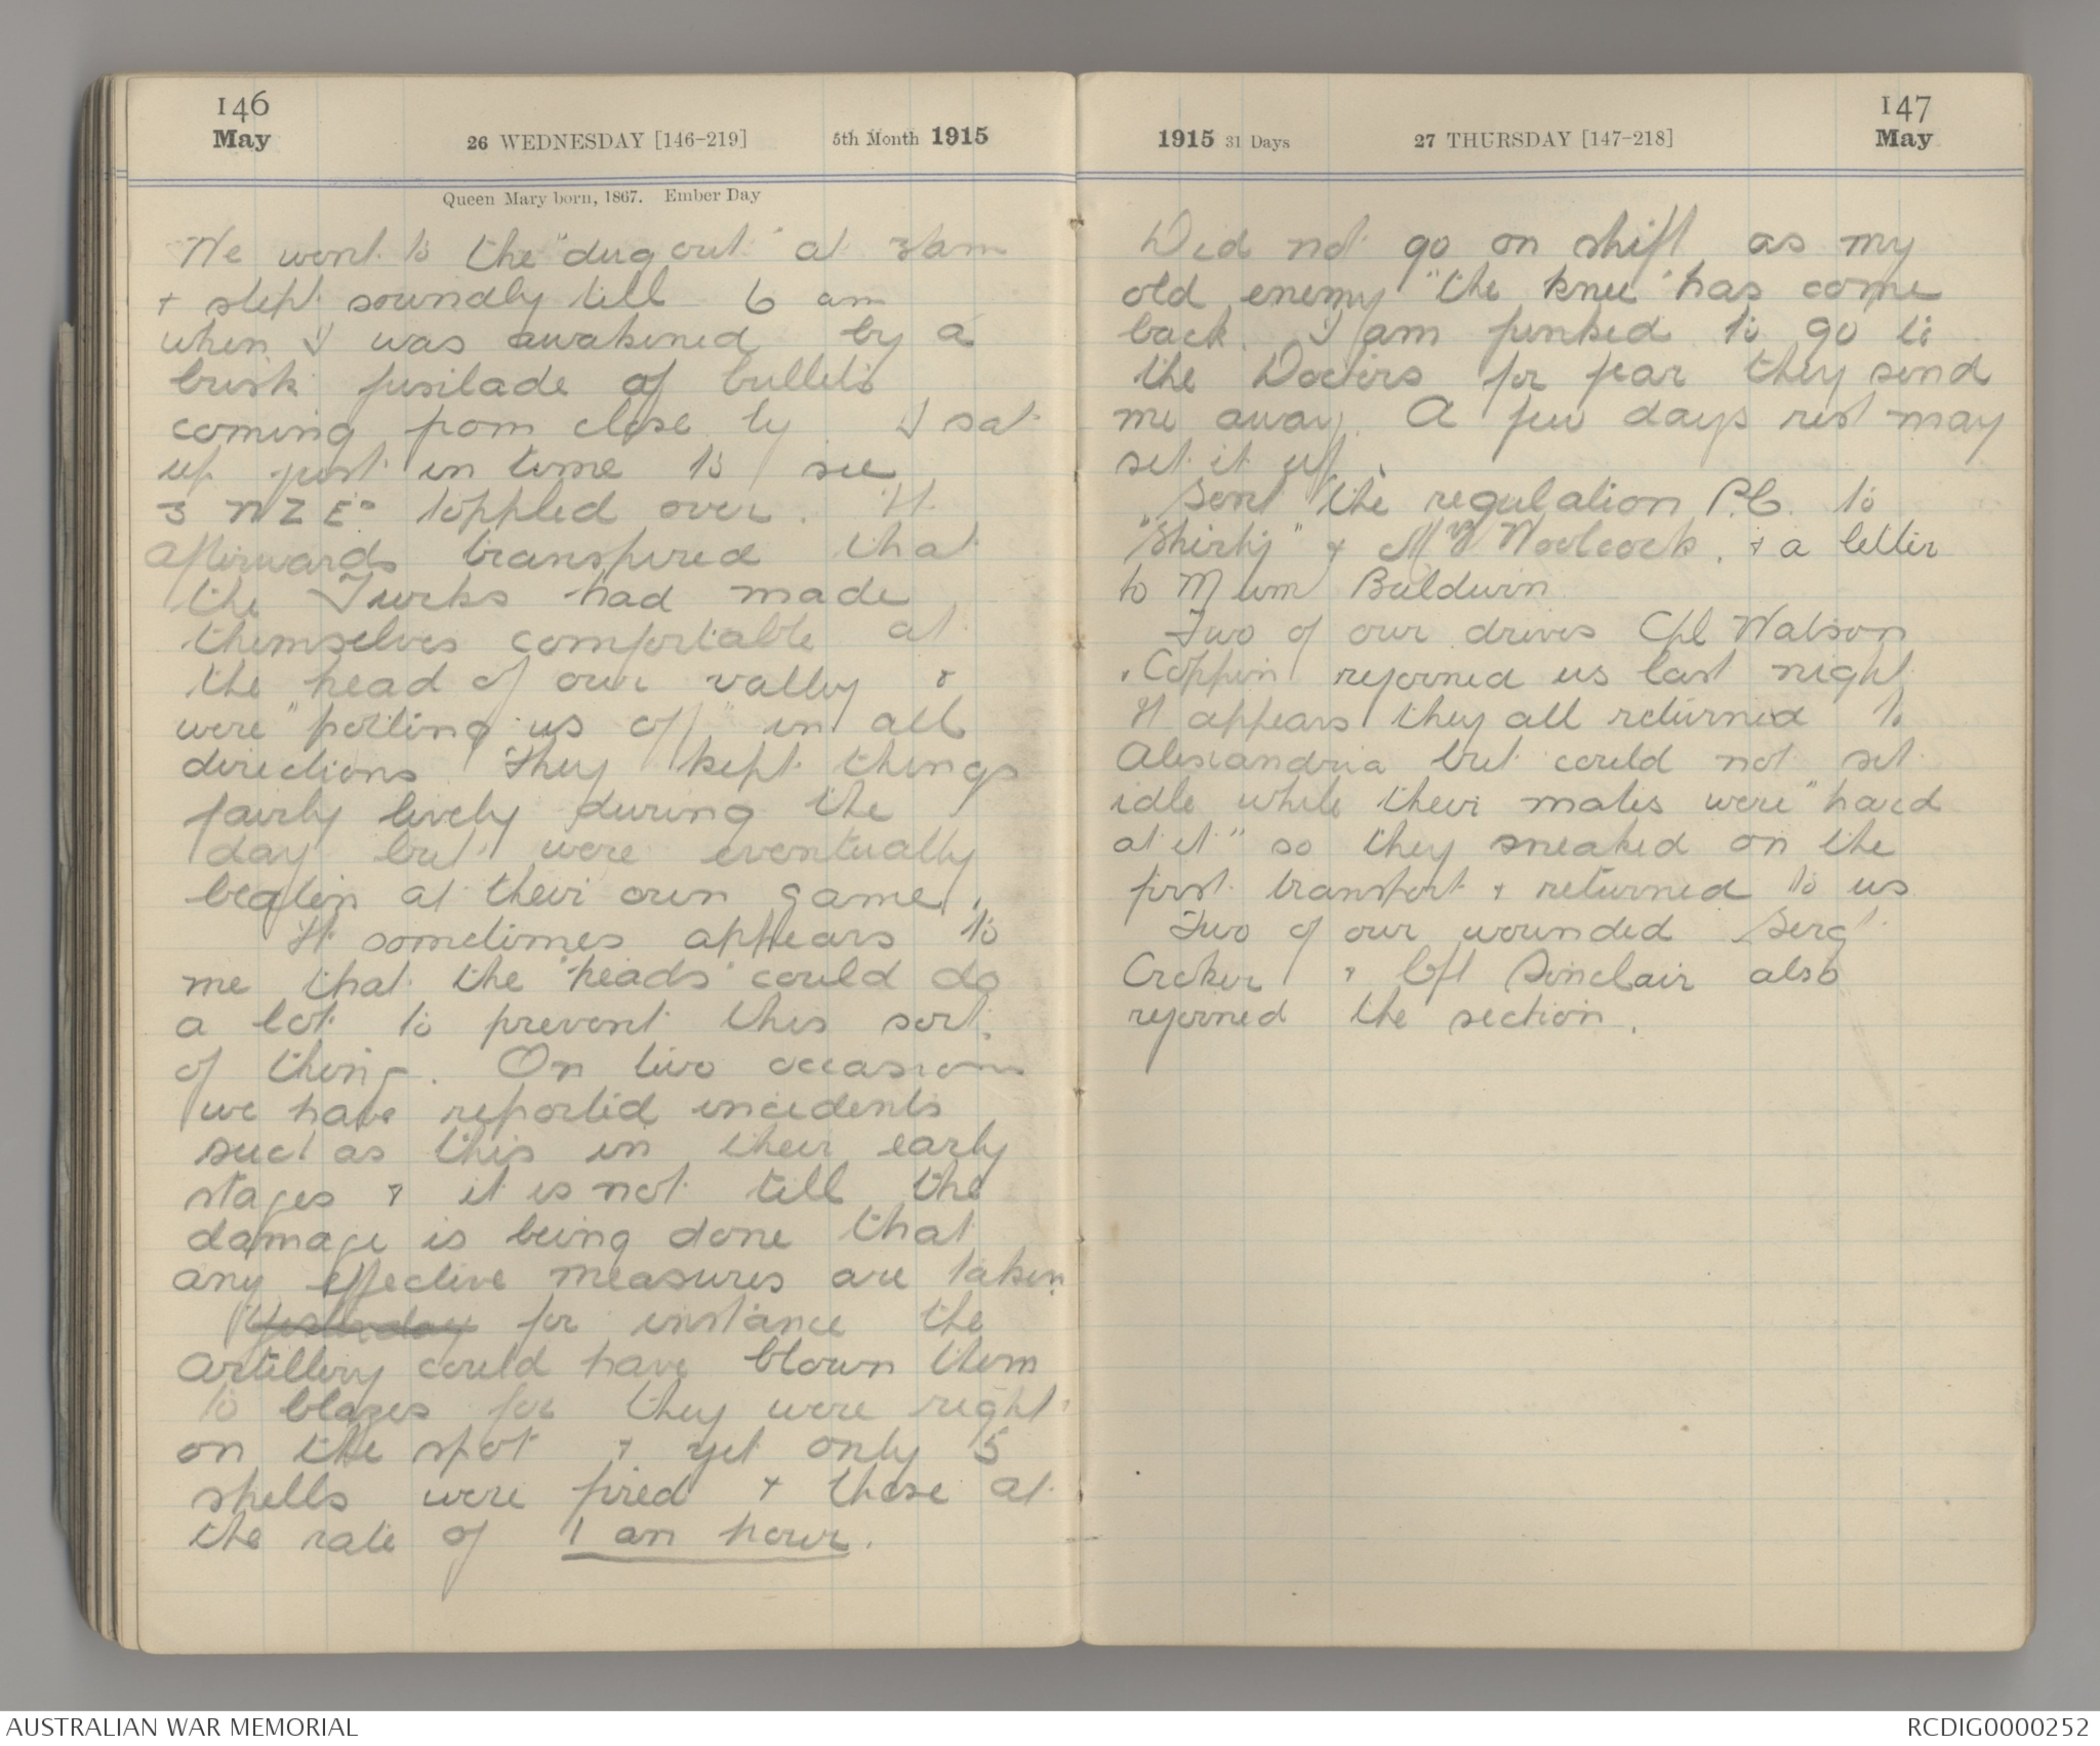 146
May
26 WEDNESDAY [146-219]
5th Month 1915
Queen Mary born, 1867. Ember Day
We went to the "dug out" at 3am
+ slept soundly till 6 am
when I was awakened by a
brisk fusilade of bullets
coming from close by. I sat
up just in time to see
3 NZEs toppled over. It
afterwards transpired that
the Turks had made
themselves comfortable at
the head of our valley &
were "potting us off" in all
directions They kept things
fairly lively during the
day but were eventually
beaten at their own game.
It sometimes appears to
me that the "heads" could do
a lot to prevent this sort
of thing. On two occasions
we have reported incidents
such as this in their early
stages & it is not till the
damage is being done that
any effective measures are taken
Yesterday for instance the
artillery could have blown them
to blazes for they were right
on the spot + yet only 5
shells were fired + those at
the rate of 1 an hour.
1915 31 Days
27 THURSDAY [147-218]
147
May
Did not go on shift as my
old enemy "the knee" has come
back. I am funked to go to
the Doctors for fear they send
me away. A few days rest may
set it up.
Sent the regulation P.C. to
"Shirly" + Woolcock, + a letter
to Mum Baldwin
Two of our drivers Cpl Watson
& Coppin rejoined us last night
It appears they all returned to
Alexandria but could not sit
idle while their mates were "hard
at it" so they sneaked on the
first transport + returned to us
Two of our wounded Sergt
Croker & Sinclair also
rejoined the section.
AUSTRALIAN WAR MEMORIAL
RCDIG0000252